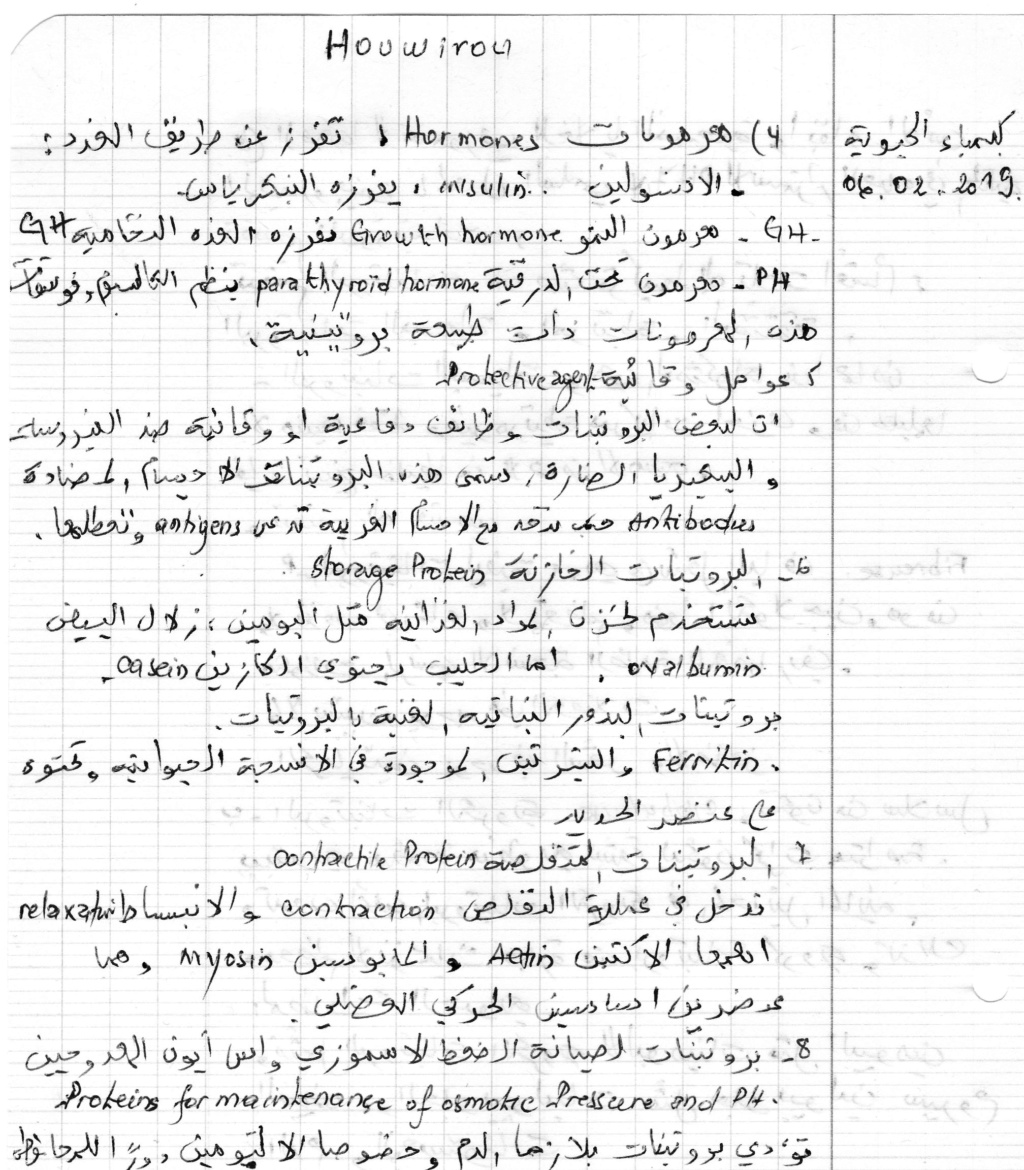 Houwirou
كيمياء الحيوية
06.02.2019
4) هرمونات Hormones، تفرز عن طريق الغدد:
- الانسولين insulin، يفرزه البنكرياس.
GH - هرمون النمو Growth hormone تفرزه الغده النخامية GH
PH - هرمون تحت الدرقية parathyroid hormone ينظم الكالسيوم
هذه الهرمونات ذات طبيعة بروتينية.
5 عوامل وقائية Protective agent
ان لبعض البروتينات وظائف دفاعية او وقائية ضد الفيروسات
و البكتيريا الضارة، تسمى هذه البروتينات الاجسام المضادة
Antibodies مع الاجسام الغريبة تدعى antigens وتعطلها.
6- البروتينات الخازنة storage Protein
تستخدم لخزن المواد الغذائيه مثل البومين: زلال البيض
ovalbumin، أما الحليب يحتوي الكازين casein.
بروتينات البذور النباتيه الغنية بالبروتينات.
. Ferritin والفيرتين الموجودة في الانسجة الحيوانيه وتحتوه
على عنصر الحديد
7 البروتينات المتقلصة contractile Protein
تدخل في عملية التقلص contraction والانبساط relaxation
اهمها الأكتين Actin و المايوسين Myosin وهما
عنصرين اساسيين الحركي العضلي.
8- بروتينات لصيانة الضغط الاسموزي واس أيون الهيدروجين
Proteins for maintenance of osmotic Pressure and PH.
تؤدي بروتينات بلازما الدم وخصوصا الالبومين دورًا للمحافظة